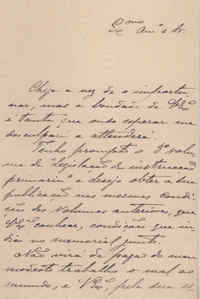 Exmo Amo e Sr.
Chega a vez de o importu-
nar, mas a bondade de V. Exª
é tanta que ouso esperar me
desculpará e attenderá.
Tenho prompto o 3º volu-
me de legislação de instrucção
primaria e desejo obter a sua
publicação nas mesmas condi-
ções dos volumes anteriores, que
V. Exª conhece, condições que in-
dico no memorial junto.
Não virá da paga do meu
modesto trabalho o mal ao
mundo, e V. Exª, pela sua